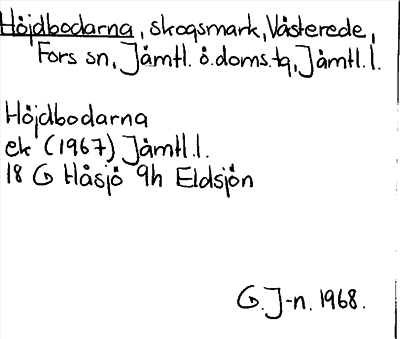 Höjdbodarna, skogsmark, Västerede,
Fors sn, Jämtl. ö. doms.tg, Jämtl. l.
Höjdbodarna
ek (1967) Jämtl.l.
18 G Håsjö 9h Eldsjön
G. J-n. 1968.